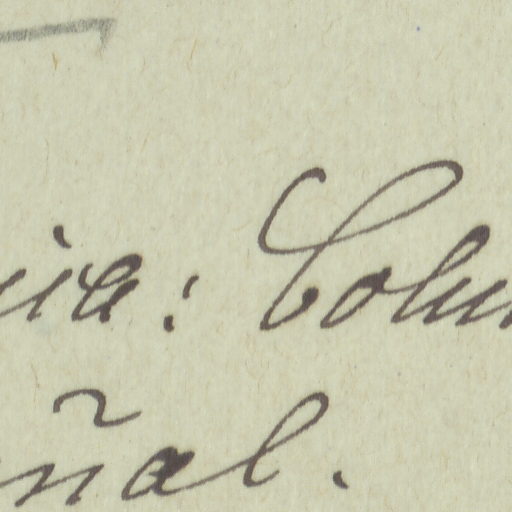 ica: Colum
ñal.